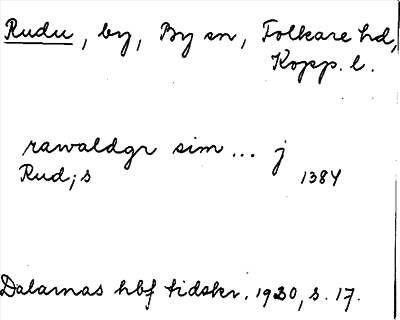 Rudu, by, By sn, Folkare hd,
Kopp. l.
rawaldgr sim ... j
Rud; s 1384
Dalarnas hbf tidskr. 1930, s. 17.